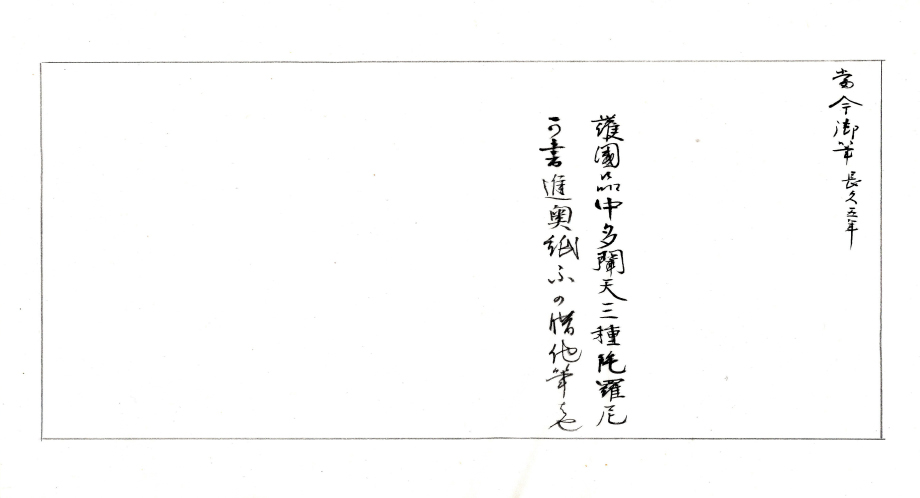 當今御筆 長久五年
護國品中多聞天三種陀羅尼
可書進奥紙不可借他筆也